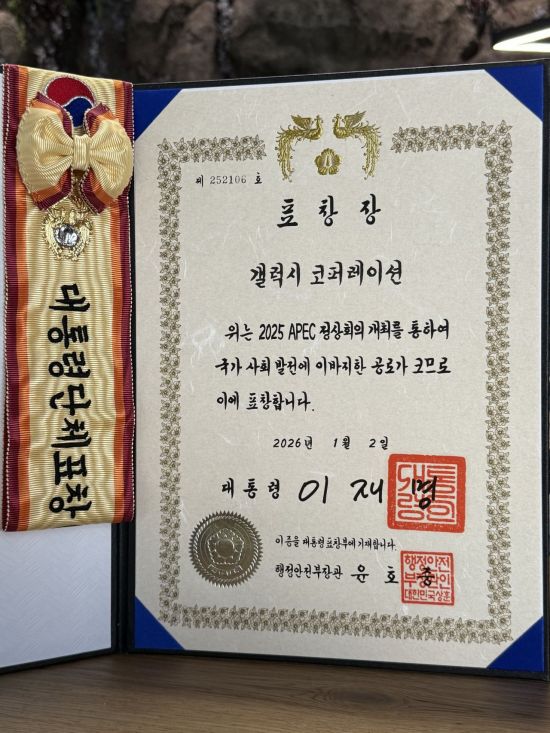 대통령단체표창
제 252106 호
표창장
갤럭시 코퍼레이션
위는 2025 APEC 정상회의 개최를 통하여
국가 사회 발전에 이바지한 공로가 크므로
이에 표창합니다.
2026년 1월 2일
대통령 이재명
대통령의
이 증을 대통령표창부에 기재합니다.
행정안전부장관 윤호중
행정안전
부장관인
대한민국상훈